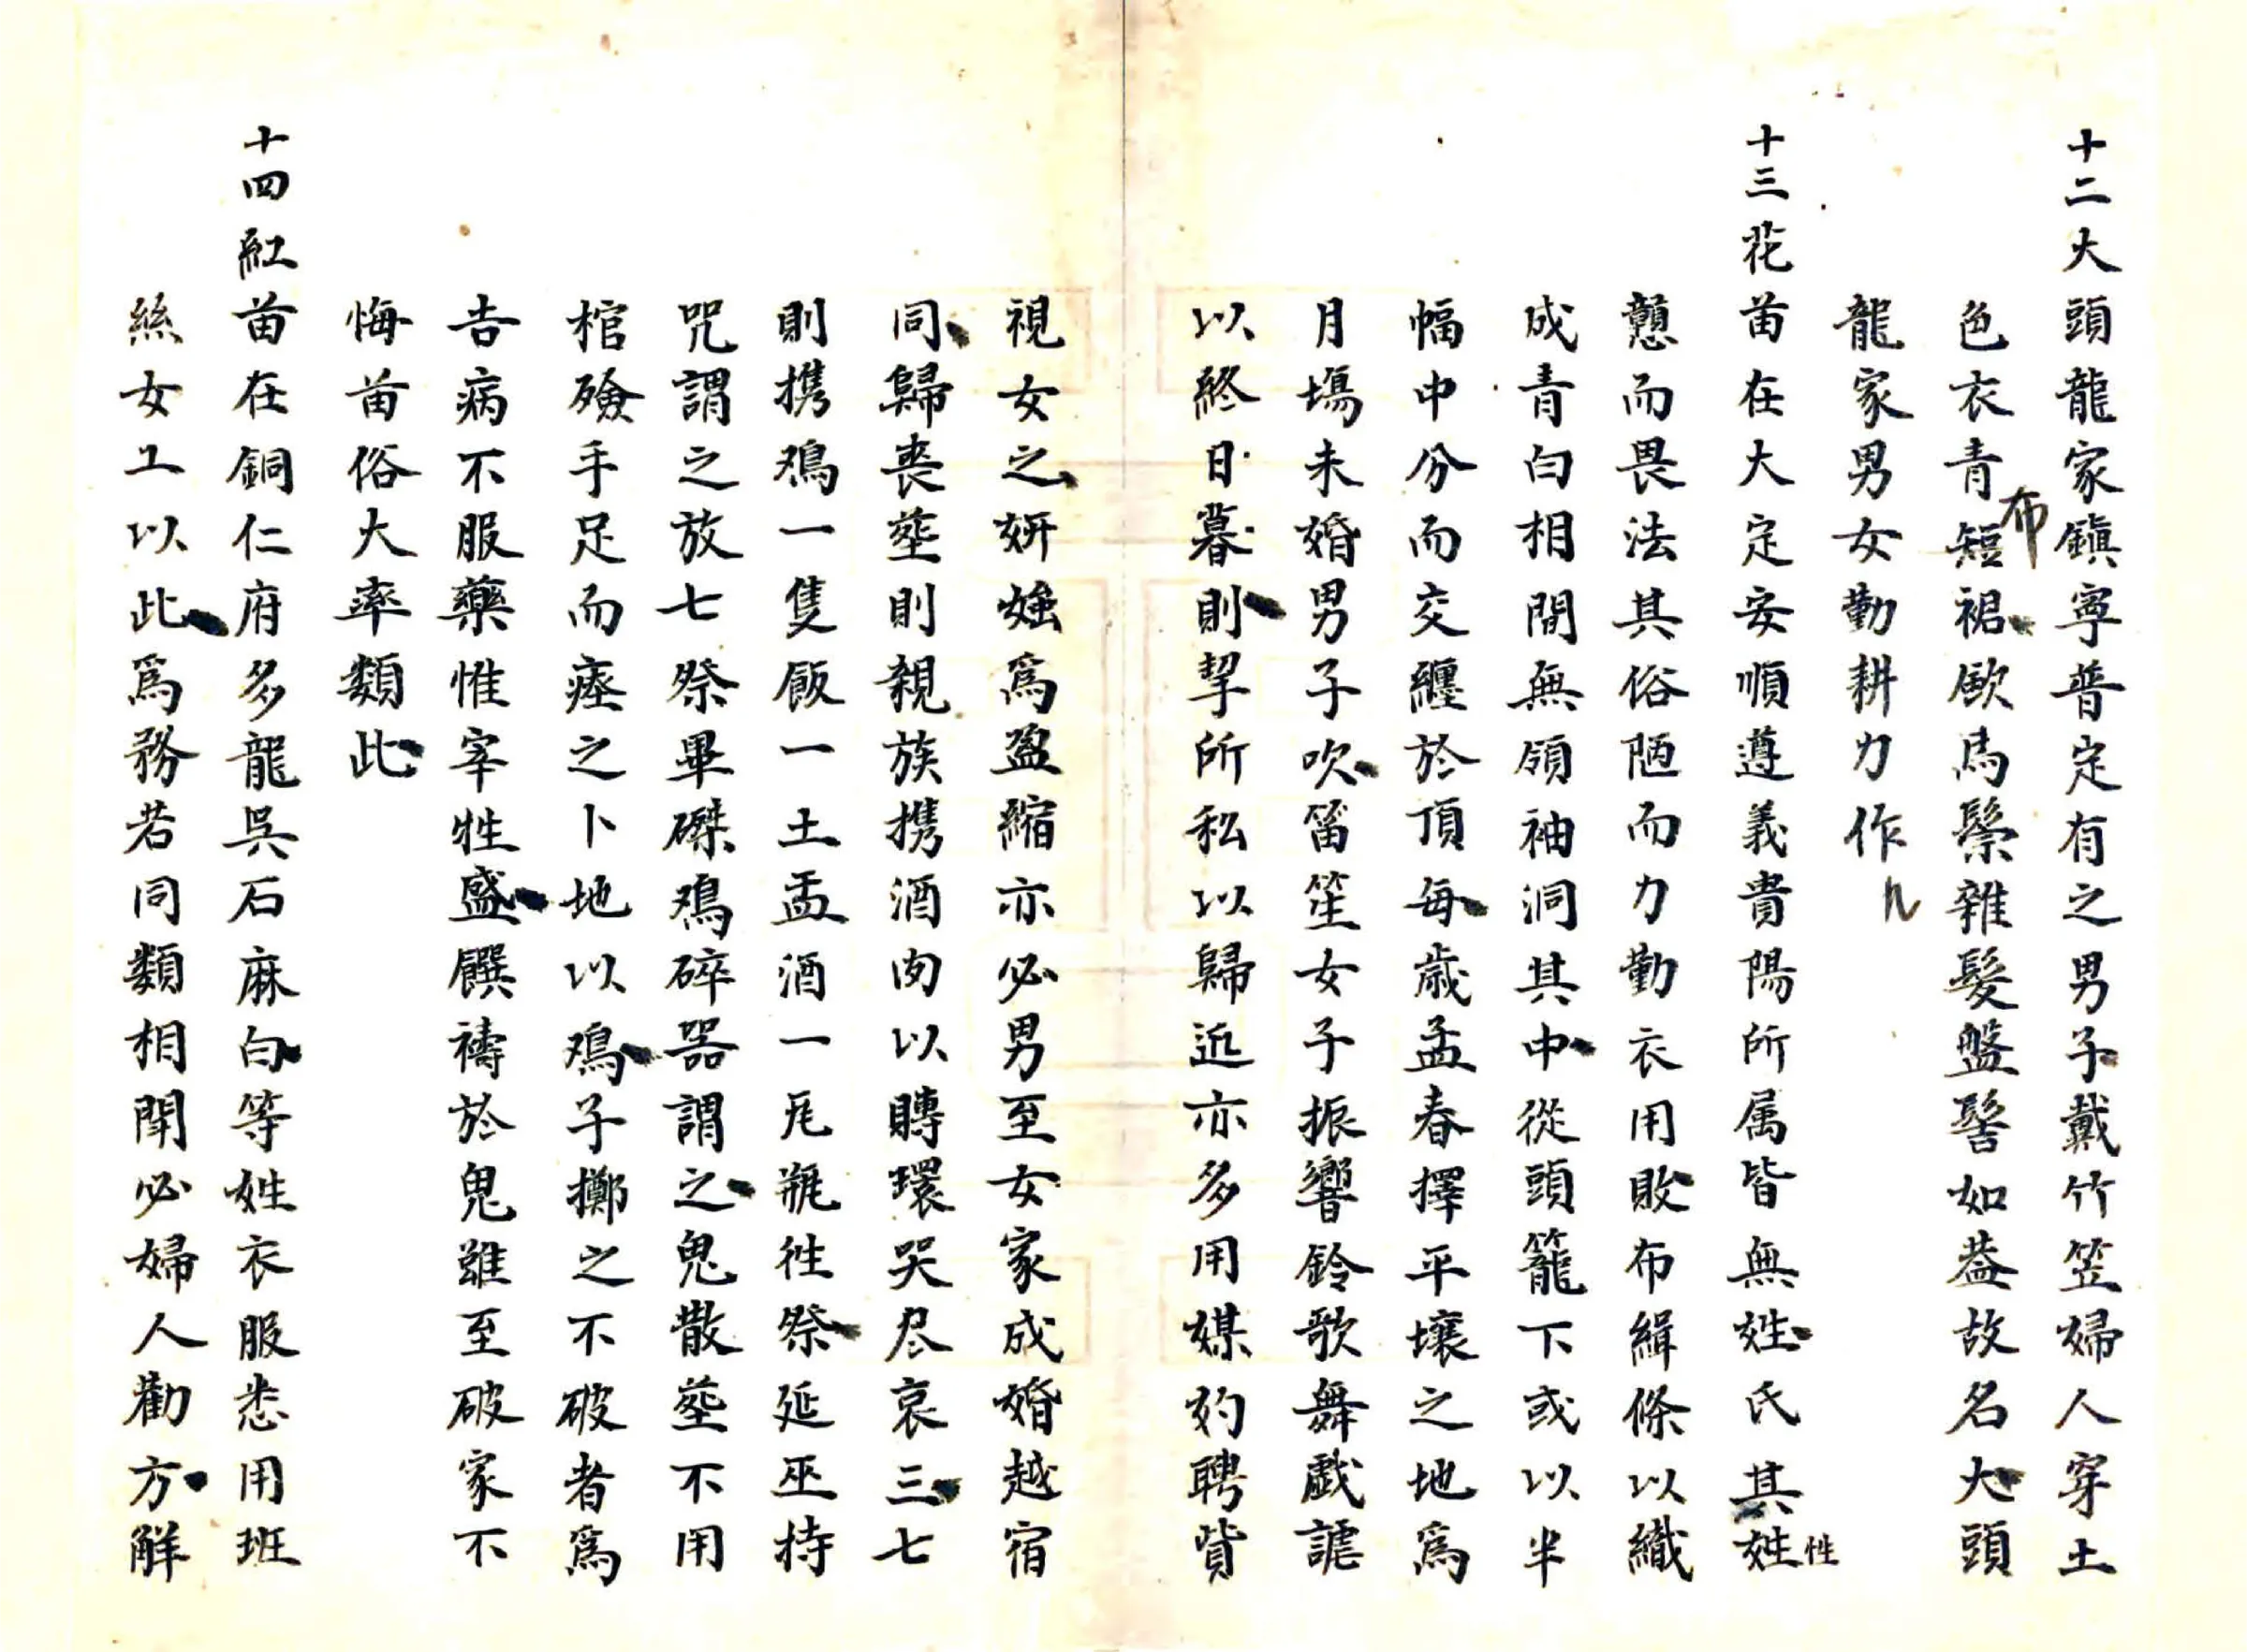 十二大頭龍家鎮寧普定有之男子戴竹笠婦人穿土
色衣青布短裙歛馬鬃雜髮盤髻如蓋故名大頭
龍家男女勤耕力作
十三花苗在大定安順遵義貴陽所属皆無姓氏其姓性
戇而畏法其俗陋而力勤衣用敗布緝條以織
成青白相間無領袖洞其中從頭籠下或以半
幅中分而交纒於頂每歲孟春擇平壤之地為
月塲未婚男子吹笛笙女子振響鈴歌舞戲謔
以終日暮則挈所私以歸近亦多用媒妁聘貲
視女之妍媸為盈縮亦必男至女家成婚越宿
同歸喪塟則親族携酒肉以賻環哭尽哀三七
則携鳮一隻飯一土盂酒一瓦瓶徃祭延巫持
咒謂之放七祭畢磔鳮碎器謂之鬼散塟不用
棺殮手足而瘞之卜地以鳮子擲之不破者為
吉病不服藥惟宰牲盛饌禱於鬼雖至破家不
悔苗俗大率類此
十四紅苗在銅仁府多龍吳石麻白等姓衣服悉用班
絲女工以此為務若同類相閗必婦人勸方觧